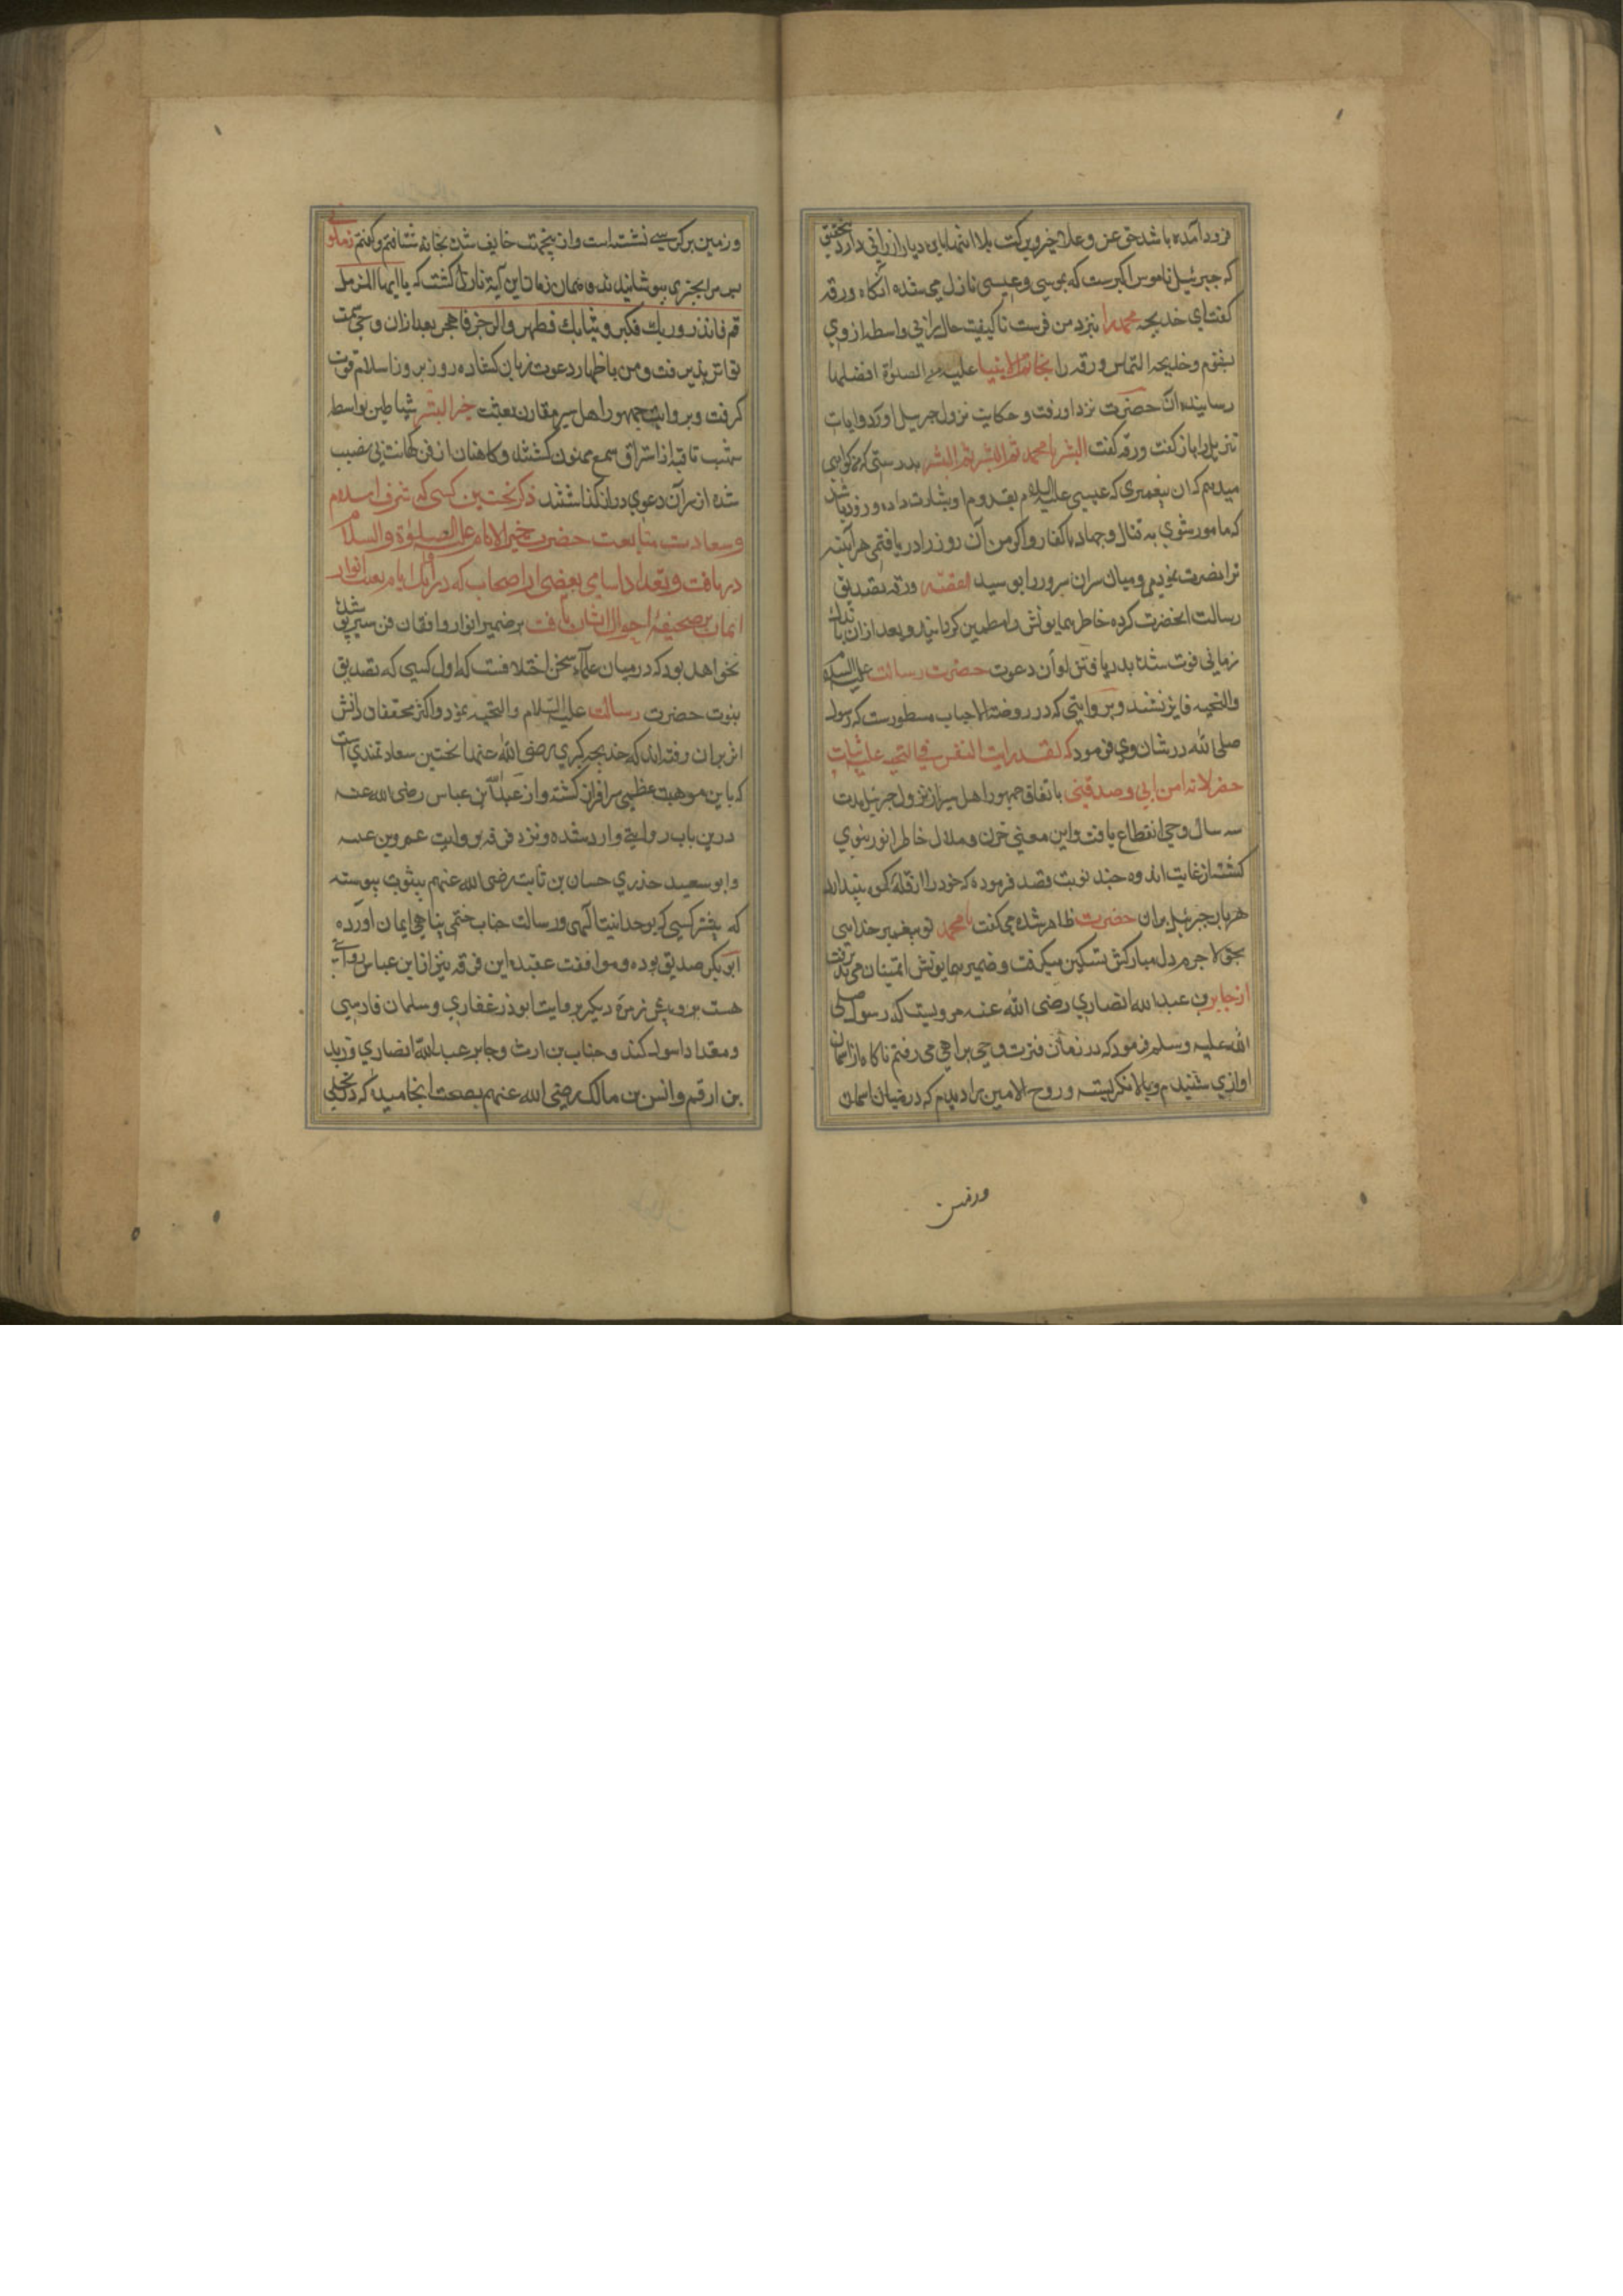 فرود آمده باشد حق عز و علا خیر و برکت بلا انتها بای دیار ارزانی دارد بتحقیق
که جبرئیل ناموس اکبرست که بموسی و عیسی نازل می شده انکاه ورقه
کفت ای خدیجه محمد را بنزد من فرست تا کیفیت حال را بی واسطه از وی
بفهم و خدیجه التماس ورقه را بخاتم الانبیا علیه من الصلوة افضلها
رسانیده آن حضرت نزد او رفت و حکایت نزول جبرئیل و آوردن آیات
تنزیل را باز کفت ورقه کفت البشر یا محمد ثم البشر ثم البشر بدرستی که من کواهی
میدهم که ان پیغمبری که عیسی علیه السلام بقدوم او بشارت داده و زود باشد
که مامور شوی به قتال و جهاد با کفار و اکر من آن روز را دریافتمی هر آینه
ترا نصرت نمودمی و میان سران سرور را بوسید القصه ورقه تصدیق
رسالت انحضرت کرده خاطر همایونش را مطمین کردانید و بعد از ان باندک
زمانی فوت شد بدریافتن اوان دعوت حضرت رسالت علیه السلام
والتحیه فایز نشد و بروایتی که در روضة الاحباب مسطورست که رسول
صلی الله در شان وی فرمود که لقد رایت القس فی الجنه علیه ثیاب
خضر لانه امن بی و صدقنی باتفاق جمهور اهل سیر از نزول جبرئیل مدت
سه سال وحی انقطاع یافت و این معنی حزن و ملال خاطر انور نبوی
کشت از غایت اندوه چند نوبت قصد فرموده که خود را از قله کوه بیندازد
هر بار جبرئیل بران حضرت ظاهر شده می کفت یا محمد تو پیغمبر خدایی
بحق لاجرم دل مبارکش تسکین میکرفت و ضمیر همایونش اتمینان می پذیرفت
از جابر بن عبد الله انصاری رضی الله عنه مرویست که رسول صلی
الله علیه و سلم فرمود که در زمان فترت وحی براهی می رفتم ناکاه از اسمان
اوازی شنیدم و بالا نکریسته و روح الامین را دیدم که در میان اسمان
ورمین
و زمین بر کرسیی نشسته است و از هیبت خایف شده بخانه شتافتم و کفتم زملونی
پس مرا بچیزی بپوشانیدند و همان زمان این آیة نازل کشت که یا ایها المزمل
قم فانذر و ربك فکبر و ثیابك فطهر و الرجز فاهجر بعد از ان وحی سمت
تواتر پذیرفت و من باظهار دعوت زبان کشاده روز بروز اسلام قوت
کرفت و بروایت جمهور اهل سیر مقارن بعثت خیر البشر شیاطین بواسطه
شهب ثاقب از استراق سمع ممنوع کشتند و کاهنان از فن کهانت بی نصیب
شده از سر آن دعوی در انکذاشتند ذکر نخستین کسی که شرف اسلام
و سعادت متابعت حضرت خیر الانام علیه الصلوة والسلام
دریافت و تعداد اسامی بعضی از اصحاب که در اوایل ایام بعثت انوار
ایمان بر صحیفه احوال ایشان یافت بر ضمیر انوار واقفان فن سیر پوشیده
نخواهد بود که در میان علماء سخن اختلافست که اول کسی که تصدیق
بنبوت حضرت رسالت علیه السلام والتحیه نمود و اکثر محققان دانش
اثر بران رفته اند که خدیجه کبری رضی الله عنها نخستین سعادتمندی است
که باین موهبت عظیمی سرافراز کشته و از عبدالله بن عباس رضی الله عنه
درین باب روایتی وارد شده و نزد فرقه بروایت عمرو بن عبسه
و ابو سعید خدری حسان بن ثابت رضی الله عنهم بثبوت پیوسته
که پیشتر کسی که بوحدانیت آلهی و رسالت جناب ختمی پناهی ایمان آورده
ابو بکر صدیق بوده و موافقت عقیده این فرقه نیز از ابن عباس روایتی
هست بروی زمره دیکر بروایت ابوذر غفاری و سلمان فارسی
و مقداد اسود کندی و خباب بن ارت و جابر عبد الله انصاری و زید
بن ارقم و انس بن مالک رضی الله عنهم بصحت انجامیده که